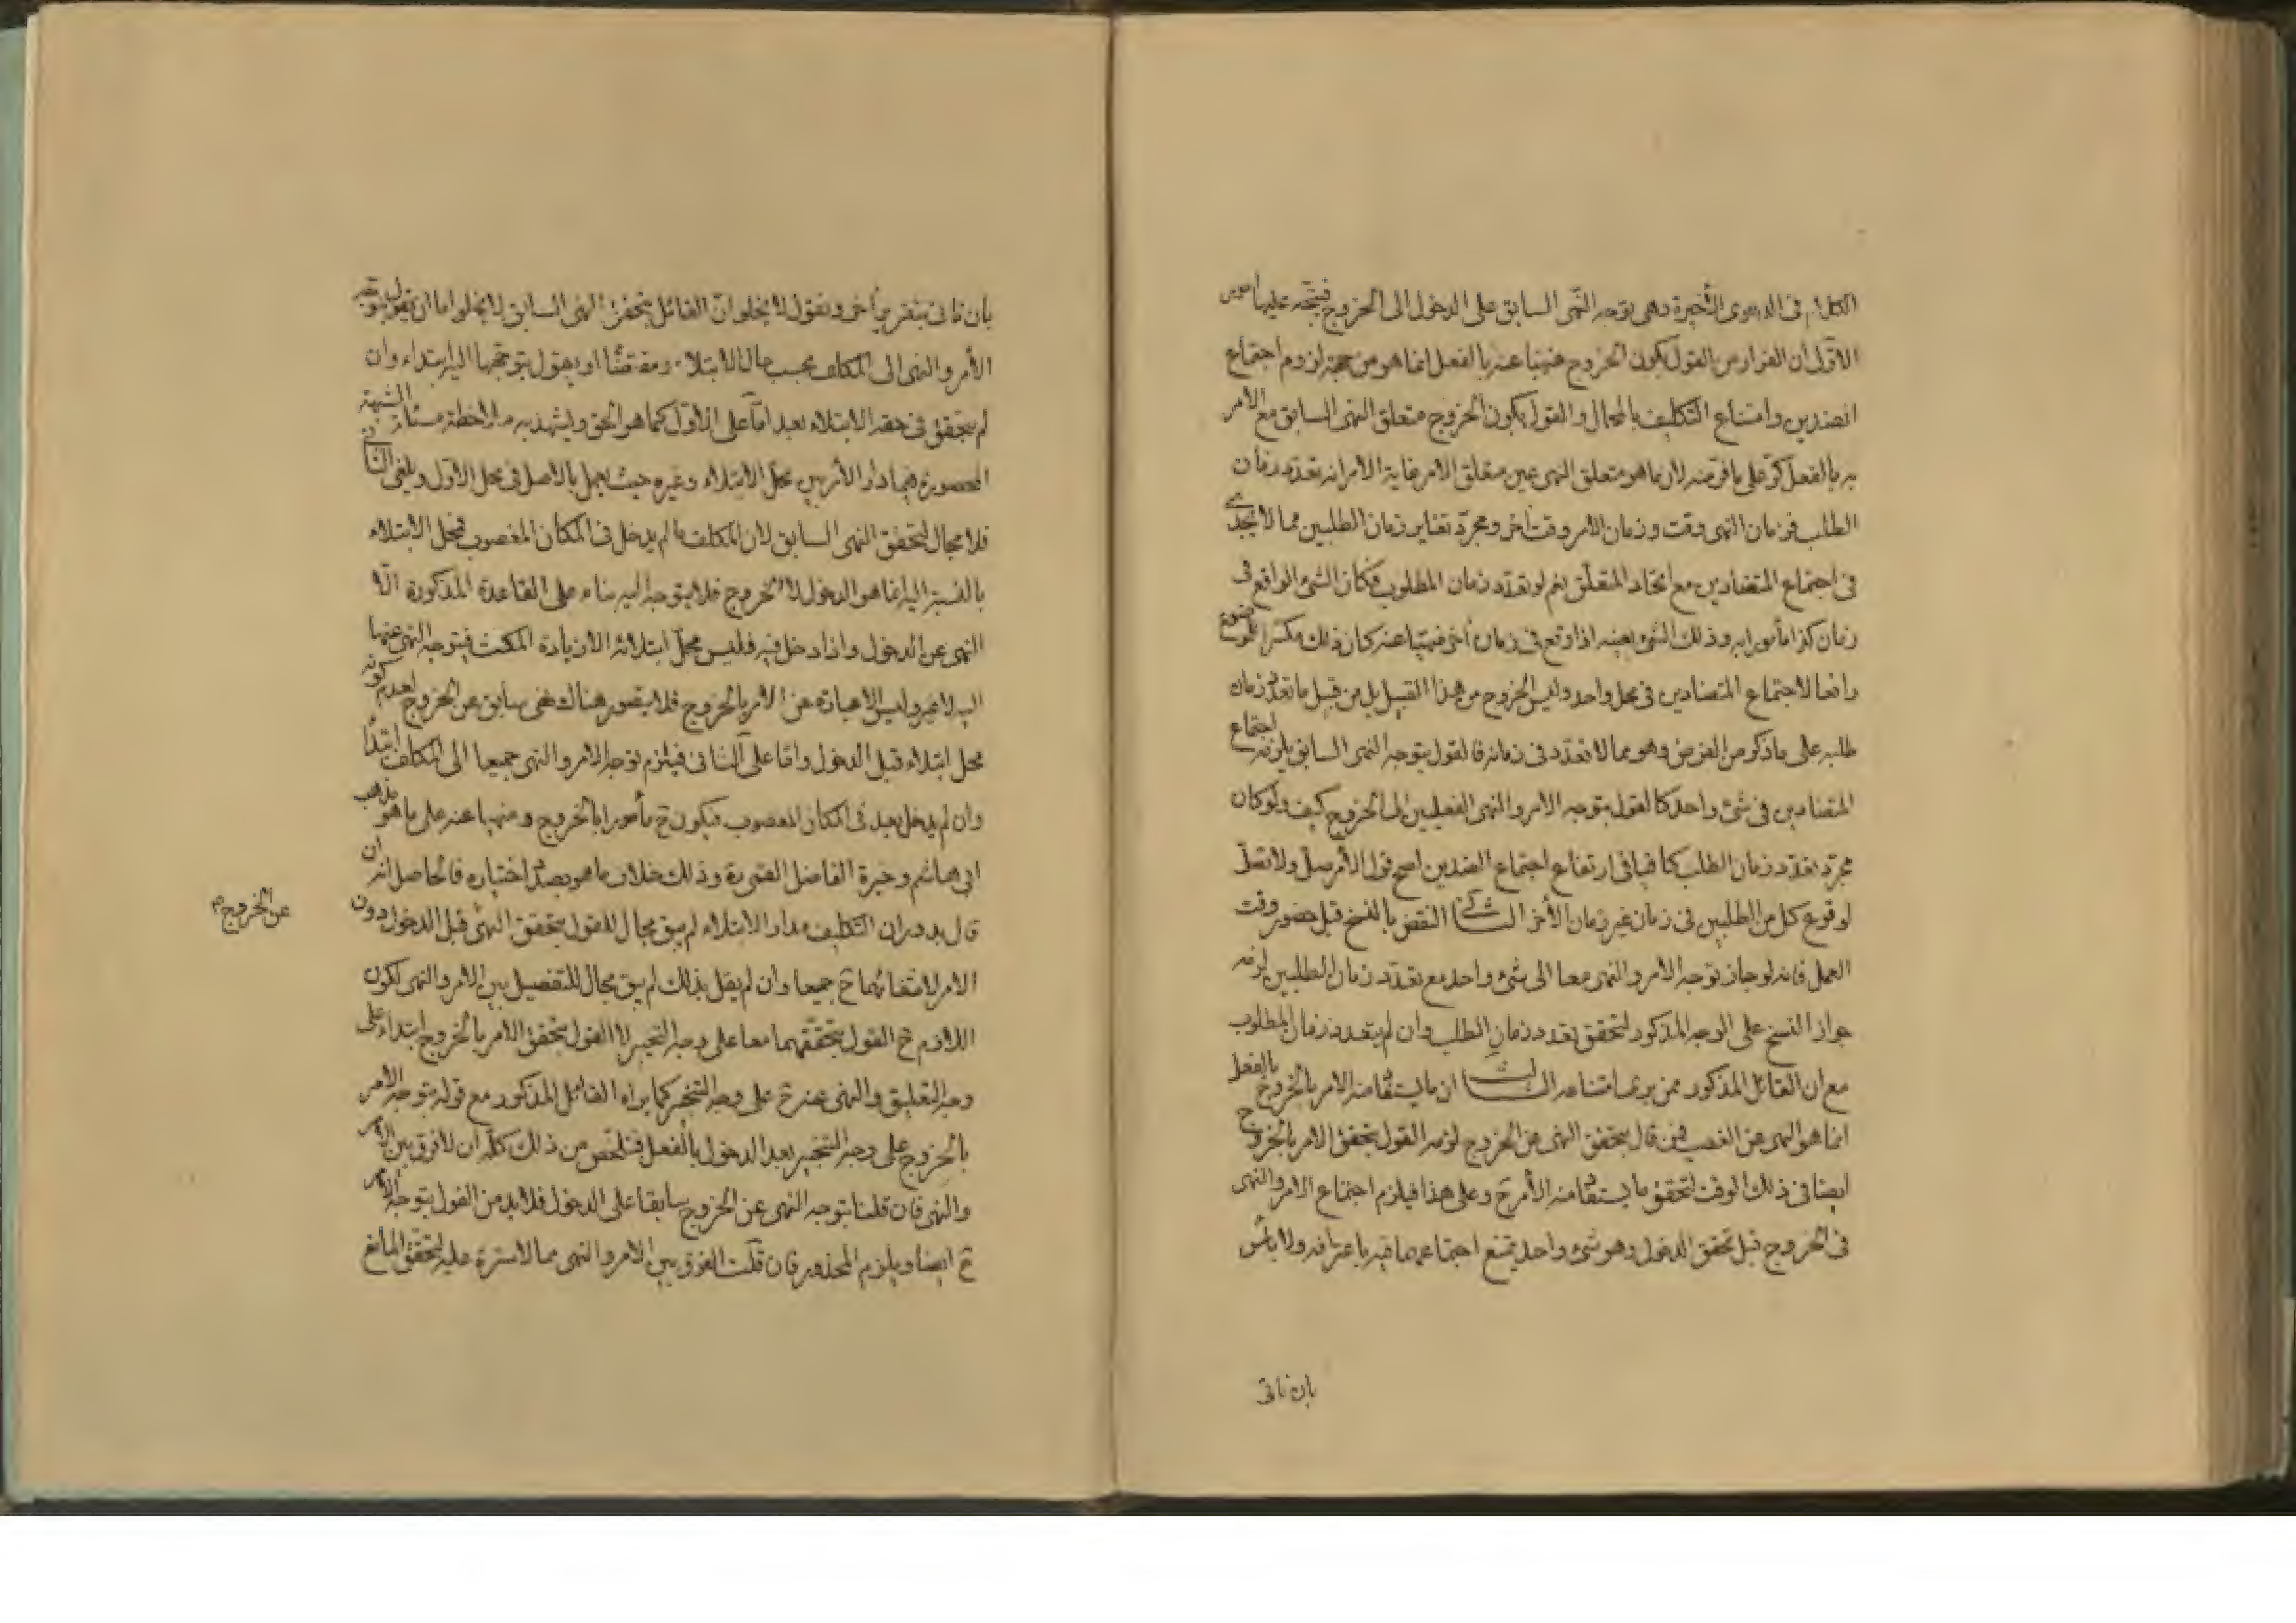 الكلام فى الدعوى الأخيرة وهى توجه النهى السابق على الدخول الى الخروج فيتجه عليها امور
الاول ان الفرار من القول بكون الخروج منهيا عنه بالفعل انما هو من جهة لزوم اجتماع
الضدين وامتناع التكليف بالمحال والقول بكون الخروج متعلق النهى السابق مع الامر
به بالفعل كر على ما فر منه لان ما هو متعلق النهى عين متعلق الامر غاية الامر انه تعدد زمان
الطلب فزمان النهى وقت و زمان الامر وقت اخر ومجرد تغاير زمان الطلبين مما لا يجدى
فى اجتماع المتضادين مع اتحاد المتعلق نعم لو تعدد زمان المطلوب فكان الشئ الواقع فى
زمان كذا مأمورا به وذلك الشئ بعينه اذا وقع فى زمان اخر منهيا عنه كان ذلك مكثرا للموضوع
رافعا لاجتماع المتضادين فى محل واحد وليس الخروج من هذا القبيل بل من قبيل ما تعدد زمان
طلبه على ما ذكر من الفرض وهو مما لا تعدد فى زمانه فالقول بتوجه النهى السابق يلزمه اجتماع
المتضادين فى شئ واحد كالقول بتوجه الامر والنهى الفعليين الى الخروج كيف ولو كان
مجرد تعدد زمان الطلب كافيا فى ارتفاع اجتماع الضدين لصح قول الأمر صل ولا تصل
لوقوع كل من الطلبين فى زمان غير زمان الأخر الثانى النقض بالنسخ قبل حضور وقت
العمل فانه لو جاز توجه الامر والنهى معا الى شئ واحد مع تعدد زمان الطلبين لزمه
جواز النسخ على الوجه المذكور لتحقق تعدد زمان الطلب وان لم يتعدد زمان المطلوب
مع ان القائل المذكور ممن يرى امتناعه الثالث ان ما يستفا منه الامر بالخروج بالفعل
انما هو النهى عن الغصب فمن قال بتحقق النهى عن الخروج لزمه القول بتحقق الامر بالخروج
ايضا فى ذلك الوقت لتحقق ما يستفا منه الأمر ح وعلى هذا فيلزم اجتماع الامر والنهى
فى الخروج قبل تحقق الدخول وهو شئ واحد يمتنع اجتماعهما فيه باعترافه ولا بأس
بان ناتى
بان ناتى بتقرير اخر ونقول لا يخلو ان القائل بتحقق النهى السابق لا يخلو اما ان يقول بتوجه
الأمر والنهى الى المكلف بحسب حال الابتلاء ومقتضا او يقول بتوجهها اليه ابتداء وان
لم يتحقق فى حقه الابتلاء بعد اما على الاول كما هو الحق ويشهد به ملاحظة مسئلة الشبهة
المحصورة فيما دار الأمر بين محل الابتلاء وغيره حيث يعمل بالاصل فى محل الاول ويلغى الثانى
فلا مجال لتحقق النهى السابق لان المكلف ما لم يدخل فى المكان المغصوب فمحل الابتلاء
بالنسبة اليه انما هو الدخول لا الخروج فلا يتوجه اليه بناء على القاعدة المذكورة الا
النهى عن الدخول واذا دخل فيه فليس محل ابتلائه الا زيادة المكث فيتوجه النهى عنها
اليه لا غير وليس الا عبارة عن الامر بالخروج فلا يتصور هناك نهى سابق عن الخروج لعدم كونه
محل ابتلاء قبل الدخول واما على الثانى فيلزم توجه الامر والنهى جميعا الى المكلف ابتداء
وان لم يدخل بعد فى المكان المغصوب فيكون ح مأمورا بالخروج و منهيا عنه على ما هو مذهب
ابى هاشم وخيرة الفاضل القمى ره وذلك خلاف ما هو بصدد اختياره فالحاصل انه ان
قال بدوران التكليف مدار الابتلاء لم يبق مجال للقول بتحقق النهى قبل الدخول دون
عن الخروج م
الامر لانتفائهما ح جميعا وان لم يقل بذلك لم يبق مجال للتفصيل بين الامر والنهى لكون
اللازم ح القول بتحققهما معا على وجه التنجيز لا القول بتحقق الامر بالخروج ابتداء على
وجه التعليق والنهى عنه ح على وجه التنجز كما يراه القائل المذكور مع قوله بتوجه الامر
بالخروج على وجه التنجيز بعد الدخول بالفعل فتلخص من ذلك كله ان لا فرق بين الامر
والنهى فان قلنا بتوجه النهى عن الخروج سابقا على الدخول فلا بد من القول بتوجه الامر
ح ايضا ويلزم المحذور فان قلت الفرق بين الامر والنهى مما لا سترة عليه لتحقق المانع